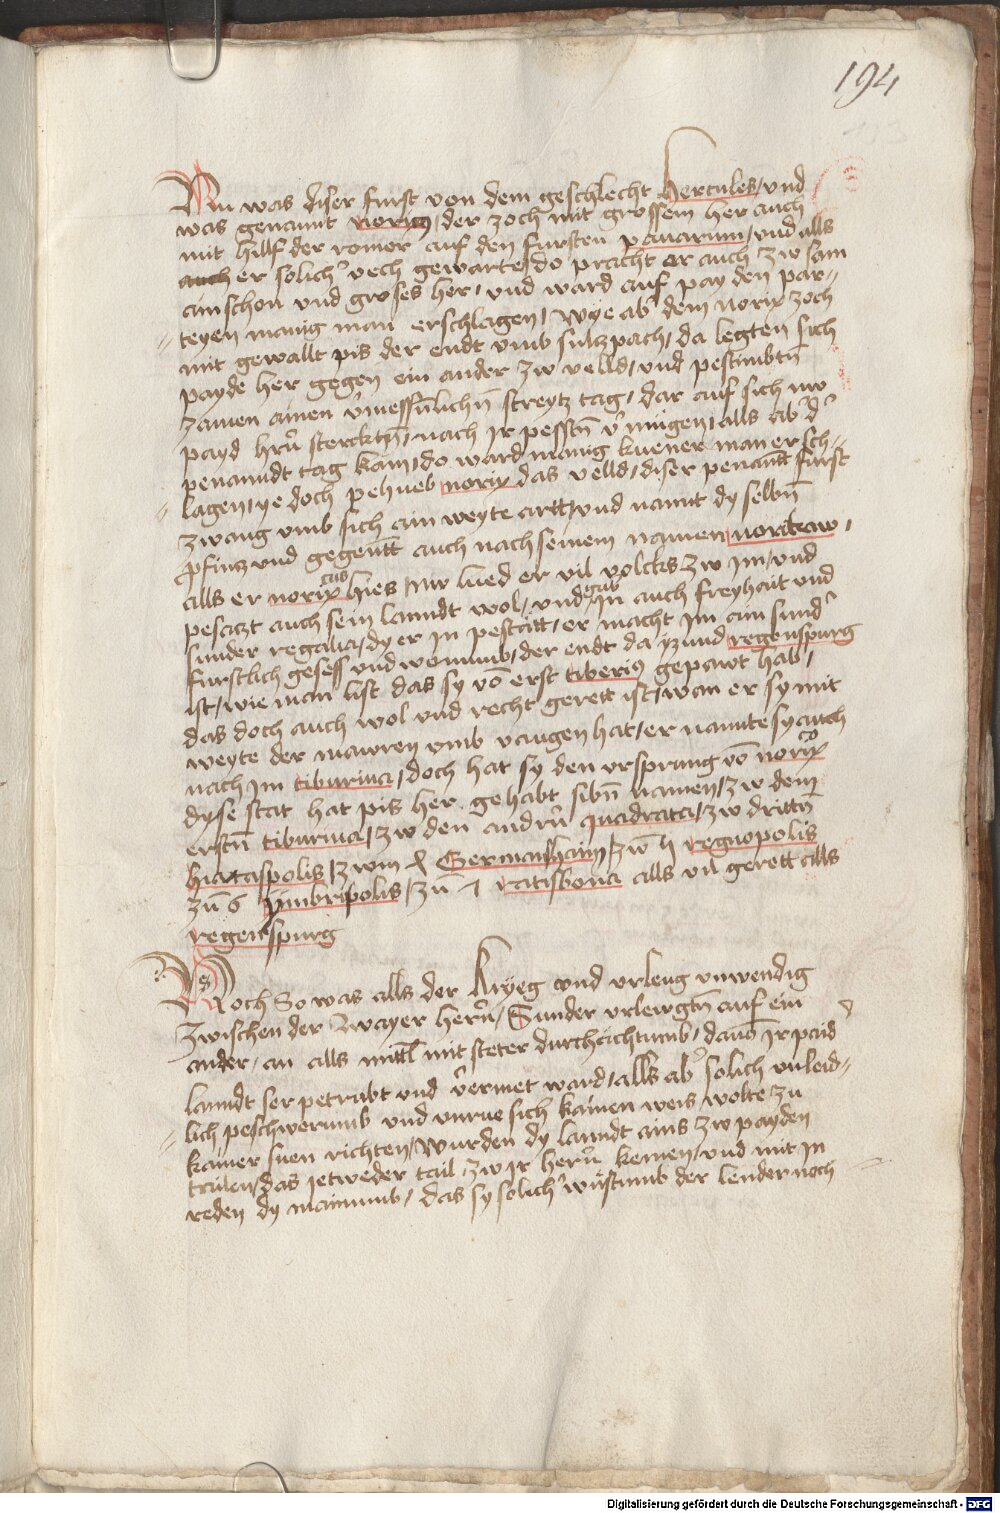 194
Nu was diser furst von dem geschlecht hercules / und
was genannt noricus / der zoch mit grossem her auch
mit hilff der romer auf den fursten pavarum / und alls
auch er solich vech gewarte / do pracht er auch zw sam
ain schon und groses her / und ward auf pay den par-
teyen manig man erschlagen / Wye ab dem norix zoch
mit gewallt pis der endt umb sulzpach / da legten sich
payde her gegen ein ander zw velld / und pestimbtn
zamen ainen streytz tag / dar auf sich nw
payd hern stercktn / nach Ir pesstn vermugen / alls aber der
penanndt tag kam / do ward manig kuener man ersch-
lagen / ye doch pehueb norix das velld / diser penantt furst
zwang umb sich ain weyte artt / und namt dy selbn
profinz und gegentt auch nach seinem namen norikaw /
alls er norix cus hies / Nw lued er vil volcks zw Im / und
pesatzt auch sein lanndt wol / und gab In auch freyhait und
sunder regalia / dy er In pestatt / er macht Im ain sunder
furstlich gesess und wonnunb / der endt da yzund regenspurg
ist / wie man list das sy von erst tiberius gepawt hab /
das doch auch wol und recht gerett ist / wan er sy mit
weyte der mawren umb vangen hat / er nannte sy auch
nach Im tiburina / doch hat sy den ursprung von norix
dyse stat hat pis her gehabt sibn namen / zw dem
erstn tiburina / zw den andrn quadrata / zw drittn
hiataspolis / zwm 4 Germanshaim / zw 5 regnopolis
zu 6 ymbripolis / zu 7 ratisbona alls nu gerett alls
regenspurg
Noch So was alls der kryeg und urleug unwendig
zwischen der zwayer hern / Sunder urleugtn auf ein
ander / an alls mittl mit steter durchaichtumb / davon Ir paid
lanndt ser petrabt und vermet ward / alls aber solich unleid-
lich peschwerumb und unrue sich kainen weis wolte zu
kainer suen richten / Wurden dy lanndt ains zw payden
tailen / das yetweder tail zw Ir hern kemen / und mit In
reden dy mainumb / das sy solich wustumb der lender noch
Digitalisierung gefördert durch die Deutsche Forschungsgemeinschaft - DFG